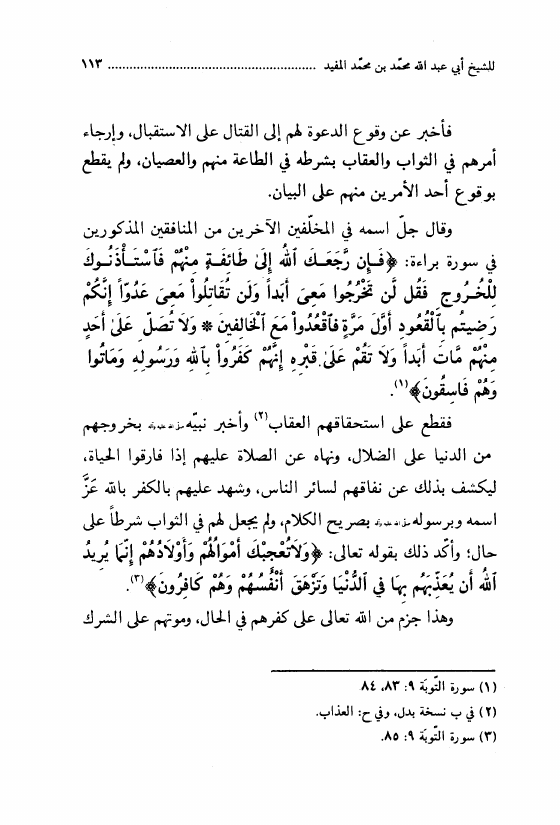 للشيخ أبي عبد الله محمّد بن محمّد المفيد ........................................................ ١١٣
فأخبر عن وقوع الدعوة لهم إلى القتال على الاستقبال، وإرجاء
أمرهم في الثواب والعقاب بشرطه في الطاعة منهم والعصيان، ولم يقطع
بوقوع أحد الأمرين منهم على البيان.
وقال جلّ اسمه في المخلّفين الآخرين من المنافقين المذكورين
في سورة براءة: ﴿فَإِن رَّجَعَكَ اللهُ إِلَىٰ طَائِفَةٍ مِنْهُمْ فَاسْتَأْذَنُوكَ
لِلْخُرُوجِ فَقُل لَن تَخْرُجُوا مَعِىَ أَبَداً وَلَن تُقَاتِلُواْ مَعِىَ عَدُوّاً إِنَّكُمْ
رَضِيتُم بِالْقُعُودِ أَوَّلَ مَرَّةٍ فَاقْعُدُواْ مَعَ الْخَالِفِينَ * وَلَا تُصَلِّ عَلَىٰ أَحَدٍ
مِنْهُمْ مَّاتَ أَبَداً وَلَا تَقُمْ عَلَىٰ قَبْرِهِ إِنَّهُمْ كَفَرُواْ بِاللهِ وَرَسُولِهِ وَمَاتُوا
وَهُمْ فَاسِقُونَ﴾(١).
فقطع على استحقاقهم العقاب(٢) وأخبر نبيّه بخروجهم
من الدنيا على الضلال، ونهاه عن الصلاة عليهم إذا فارقوا الحياة،
ليكشف بذلك عن نفاقهم لسائر الناس، وشهد عليهم بالكفر بالله عَزَّ
اسمه وبرسوله بصريح الكلام، ولم يجعل لهم في الثواب شرطاً على
حال؛ وأكّد ذلك بقوله تعالى: ﴿وَلَاتُعْجِبْكَ أَمْوَالُهُمْ وَأَوْلَادُهُمْ إِنَّمَا يُرِيدُ
اللهُ أَن يُعَذِّبَهُم بِهَا فِي الدُّنْيَا وَتَزْهَقَ أَنْفُسُهُمْ وَهُمْ كَافِرُونَ﴾(٣).
وهذا جزم من الله تعالى على كفرهم في الحال، وموتهم على الشرك
(١) سورة التّوبَة ٩: ٨٣، ٨٤
(٢) في ب نسخة بدل، وفي ح: العذاب.
(٣) سورة التّوبَة ٩: ٨٥.